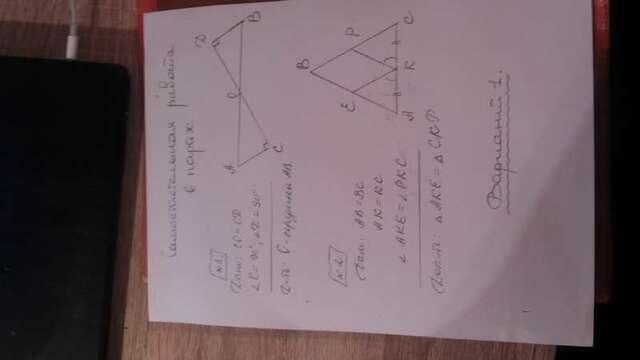 Самостоятельная работа
в парах.
№1.
Дано: CO = OD
∠C = 90°, ∠D = 90°
Д-ть: O - середина AB.
A
C
O
D
B
№2.
Дано: AB = BC
AK = KC
∠AKE = ∠PKC
Док-ть: △AKE = △CKP
B
E
P
A
K
C
Вариант 1.